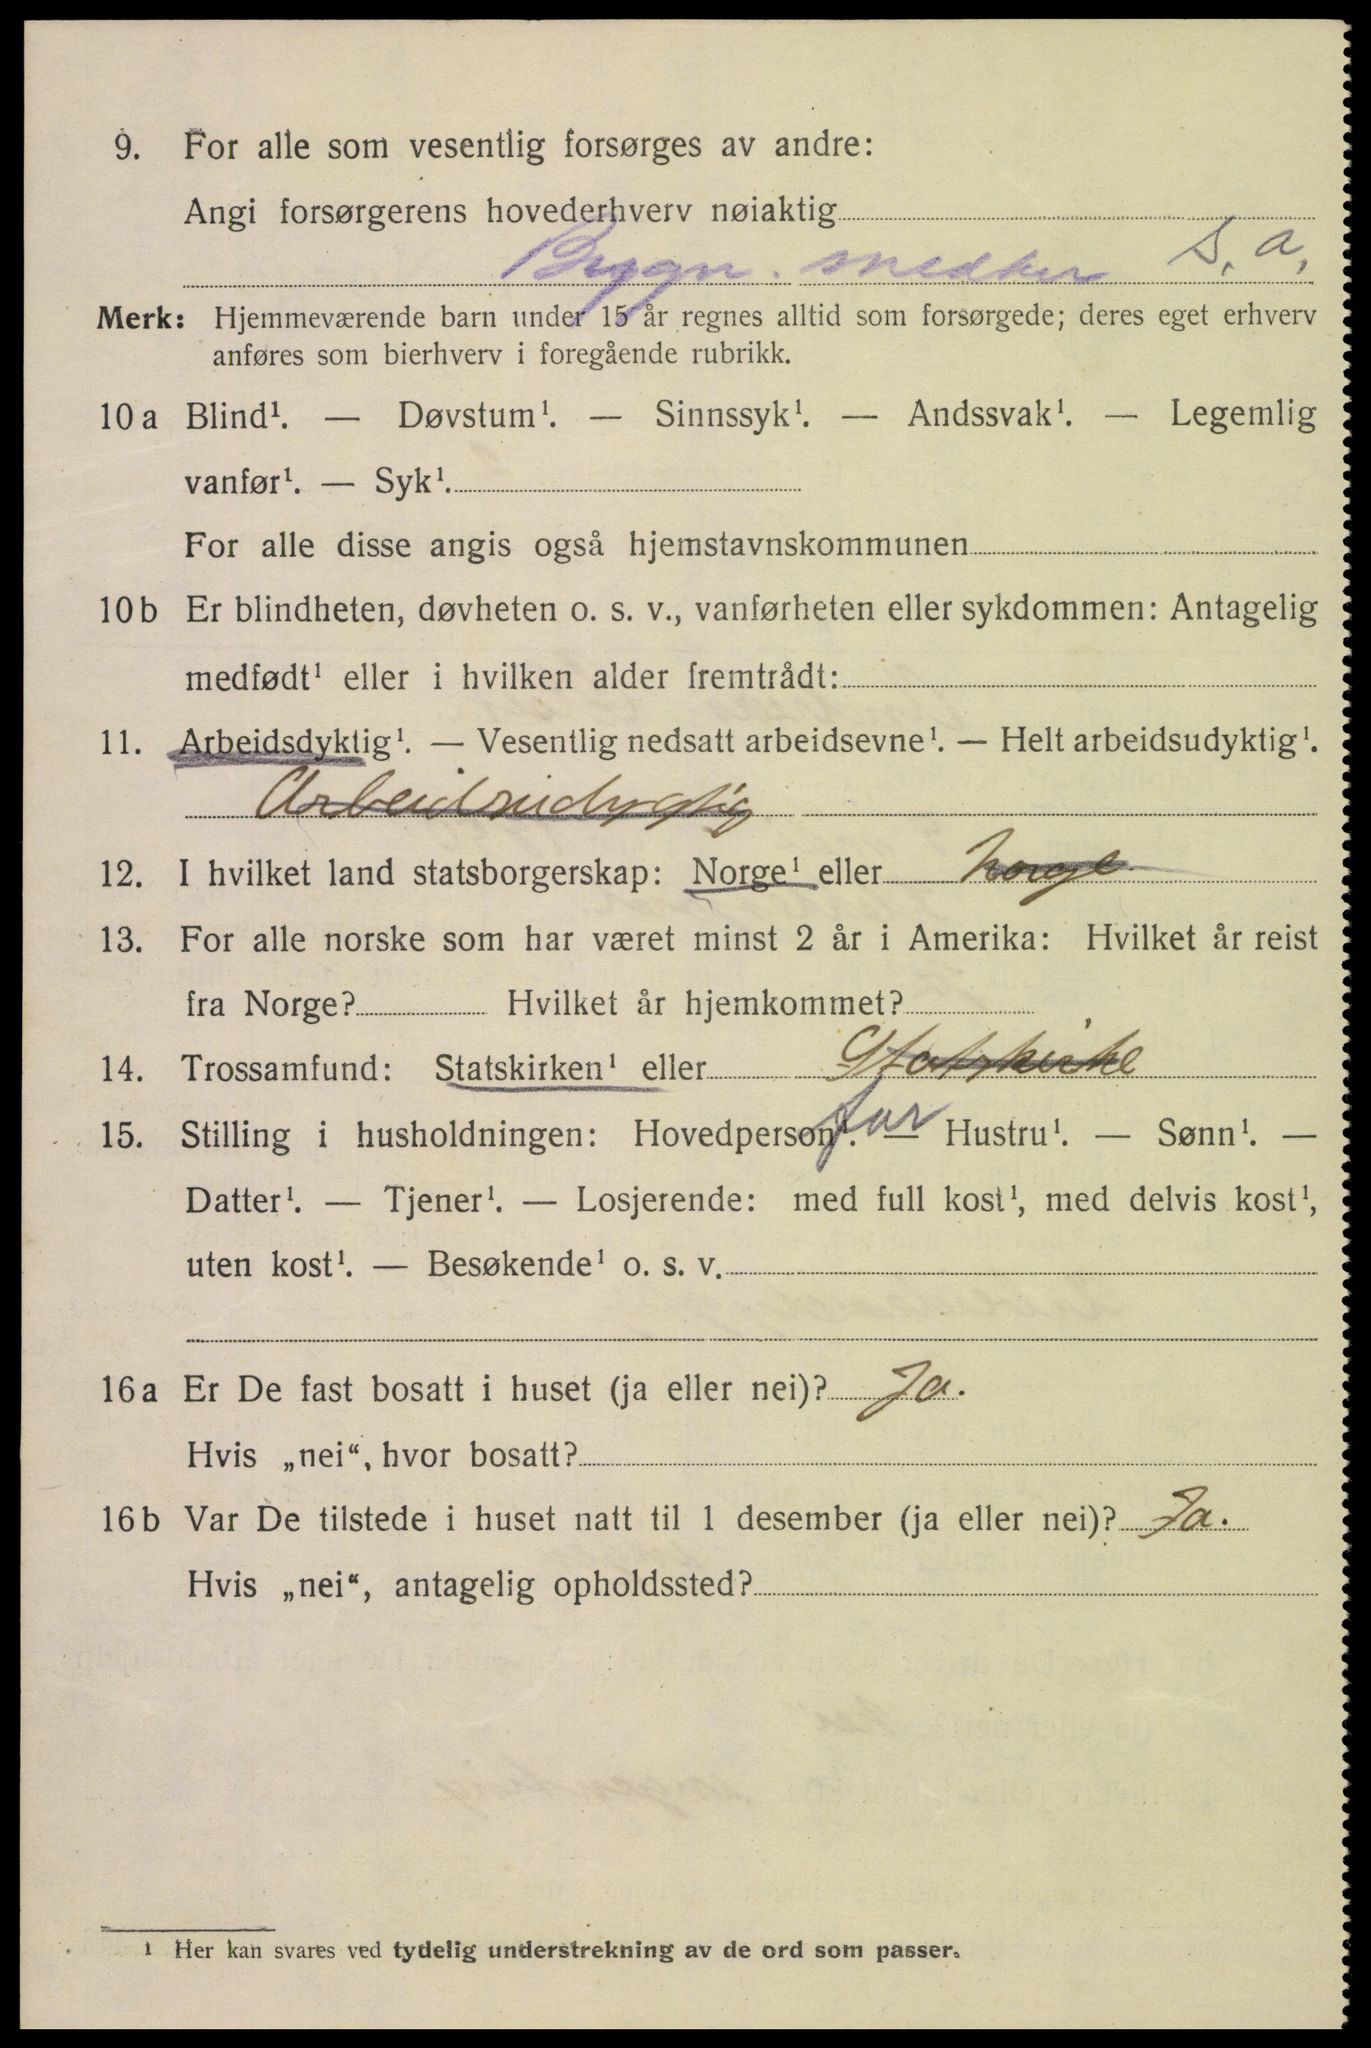 9. For alle som vesentlig forsørges av andre:
Angi forsørgerens hovederhverv nøiaktig
Bygn. snedker s. a.
Merk: Hjemmeværende barn under 15 år regnes alltid som forsørgede; deres eget erhverv
anføres som bierhverv i foregående rubrikk.
10 a Blind¹. — Døvstum¹. — Sinnssyk¹. — Andssvak¹. — Legemlig
vanfør¹. — Syk¹.
For alle disse angis også hjemstavnskommunen
10 b Er blindheten, døvheten o. s. v., vanførheten eller sykdommen: Antagelig
medfødt¹ eller i hvilken alder fremtrådt:
11. Arbeidsdyktig¹. — Vesentlig nedsatt arbeidsevne¹. — Helt arbeidsudyktig¹.
Arbeidsudygtig
12. I hvilket land statsborgerskap: Norge¹ eller Norge
13. For alle norske som har været minst 2 år i Amerika: Hvilket år reist
fra Norge? Hvilket år hjemkommet?
14. Trossamfund: Statskirken¹ eller Statskirke
15. Stilling i husholdningen: Hovedperson¹. far — Hustru¹. — Sønn¹. —
Datter¹. — Tjener¹. — Losjerende: med full kost¹, med delvis kost¹,
uten kost¹. — Besøkende¹ o. s. v.
16 a Er De fast bosatt i huset (ja eller nei)? Ja.
Hvis „nei“, hvor bosatt?
16 b Var De tilstede i huset natt til 1 desember (ja eller nei)? Ja.
Hvis „nei“, antagelig opholdssted?
1 Her kan svares ved tydelig understrekning av de ord som passer.